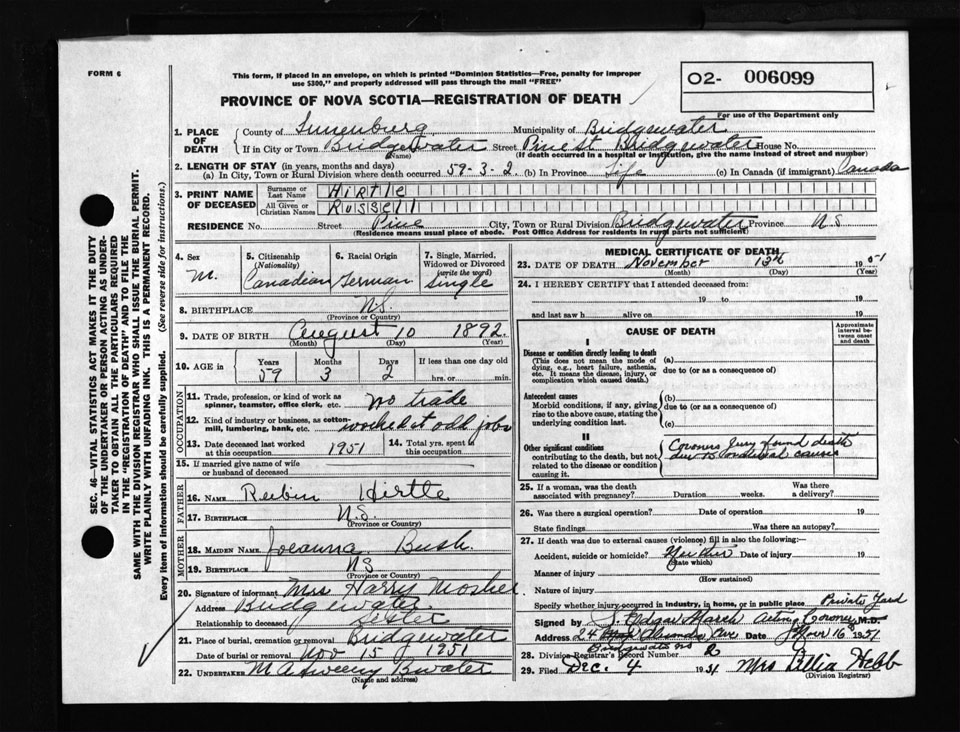 FORM 6
This form, if placed in an envelope, on which is printed "Dominion Statistics—Free, penalty for improper
use $300," and properly addressed will pass through the mail "FREE"
O2- 006099
For use of the Department only
PROVINCE OF NOVA SCOTIA—REGISTRATION OF DEATH
1. PLACE OF DEATH
County of Lunenburg Municipality of Bridgewater
If in City or Town Bridgewater Street Pine St Bridgewater House No.
(Name) (If death occurred in a hospital or institution, give the name instead of street and number)
2. LENGTH OF STAY (in years, months and days)
(a) In City, Town or Rural Division where death occurred 59-3-2. (b) In Province Life (c) In Canada (if immigrant) Canada
3. PRINT NAME OF DECEASED
Surname or Last Name Hirtle
All Given or Christian Names Russell
RESIDENCE No. Street Pine City, Town or Rural Division Bridgewater Province N.S
(Residence means usual place of abode. Post Office Address for residents in rural parts not sufficient)
4. Sex M.
5. Citizenship (Nationality) Canadian
6. Racial Origin German
7. Single, Married, Widowed or Divorced (write the word) Single
8. BIRTHPLACE N.S.
(Province or Country)
9. DATE OF BIRTH August 10 1892.
(Month) (Day) (Year)
10. AGE in Years Months Days If less than one day old
59 3 2 hrs. or min.
OCCUPATION
11. Trade, profession, or kind of work as spinner, teamster, office clerk, etc. no trade
12. Kind of industry or business, as cotton-mill, lumbering, bank, etc. worked at odd jobs
13. Date deceased last worked at this occupation 1951
14. Total yrs. spent in this occupation
15. If married give name of wife or husband of deceased
FATHER
16. NAME Reubin Hirtle
17. BIRTHPLACE N.S.
(Province or Country)
MOTHER
18. MAIDEN NAME Joeanna Bush
19. BIRTHPLACE NS
(Province or Country)
20. Signature of informant Mrs Harry Mosher
Address Bridgewater
Relationship to deceased Sister
21. Place of burial, cremation or removal Bridgewater
Date of burial or removal Nov 15 1951
22. UNDERTAKER Bwater
(Name and Address)
MEDICAL CERTIFICATE OF DEATH
23. DATE OF DEATH November 13th 1951
(Month) (Day) (Year)
24. I HEREBY CERTIFY that I attended deceased from:
19 to 19
and last saw h alive on 19
CAUSE OF DEATH
Approximate interval between onset and death
I
Disease or condition directly leading to death
(This does not mean the mode of dying, e.g., heart failure, asthenia, etc. It means the disease, injury, or complication which caused death.)
(a)
due to (or as a consequence of)
Antecedent causes
Morbid conditions, if any, giving rise to the above cause, stating the underlying condition last.
(b)
due to (or as a consequence of)
(c)
II
Other significant conditions
contributing to the death, but not related to the disease or condition causing it.
Coroners Jury found death
due to natural causes
25. If a woman, was the death associated with pregnancy? Duration weeks. Was there a delivery?
26. Was there a surgical operation? Date of operation 19
State findings Was there an autopsy?
27. If death was due to external causes (violence) fill in also the following:—
Accident, suicide or homicide? Neither Date of injury 19
(State which)
Manner of injury
(How sustained)
Nature of injury
Specify whether injury occurred in industry, in home, or in public place Private Yard
Signed by J. Edgar March Acting Coroner M.D.
Address 24 Alexandra Ave Date Nov 16 1951
Bridgewater NS
28. Division Registrar's Record Number
29. Filed Dec. 4 1951 Mrs Lillia Hebb
(Division Registrar)
SEC. 46—VITAL STATISTICS ACT MAKES IT THE DUTY
OF THE UNDERTAKER OR PERSON ACTING AS UNDER-
TAKER TO OBTAIN ALL THE PARTICULARS REQUIRED
IN THE "REGISTRATION OF DEATH" AND TO FILE THE
SAME WITH THE DIVISION REGISTRAR WHO SHALL ISSUE THE BURIAL PERMIT.
WRITE PLAINLY WITH UNFADING INK. THIS IS A PERMANENT RECORD.
Every item of information should be carefully supplied. (See reverse side for instructions.)